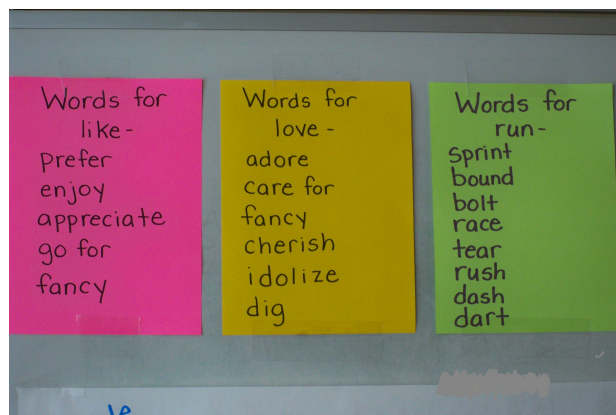 Words for
like-
prefer
enjoy
appreciate
go for
fancy
Words for
love-
adore
care for
fancy
cherish
idolize
dig
Words for
run-
sprint
bound
bolt
race
tear
rush
dash
dart